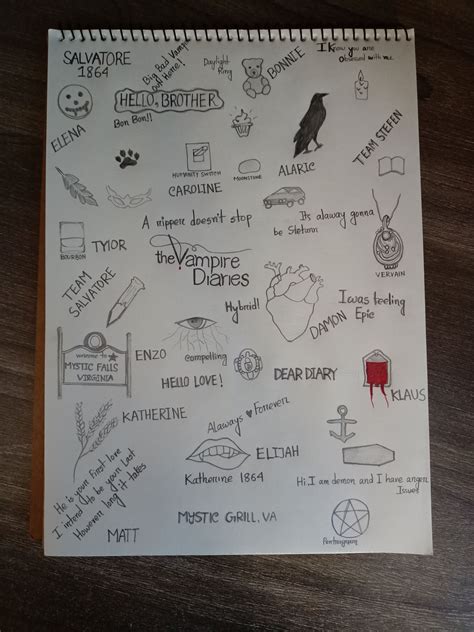 SALVATORE
1864
Big Bad Vamp
Out Home!
Daylight
Ring
BONNIE
I Know you are
obsessed with me
HELLO, BROTHER
Bon Bon!!
ELENA
TEAM STEFEN
HUMANITY SWITCH
MOONSTONE
ALARIC
CAROLINE
A ripper doesn't stop
Its alaway gonna
be Stefunn
BOURBON
TYlOR
the Vampire
Diaries
VERVAIN
TEAM
SALVATORE
Hybrid!
DAMON
I was feeling
Epic
welcome to
MYSTIC FALLS
VIRGINIA
ENZO
@compelling
HELLO LOVE!
DEAR DIARY
KLAUS
KATHERINE
Alaways & Forever
He is your First love
I intend to be your Last
However long it takes
ELIJAH
Katherine 1864
Hi. I am demon and I have anger
Issued
MYSTIC GRILL.VA
MATT